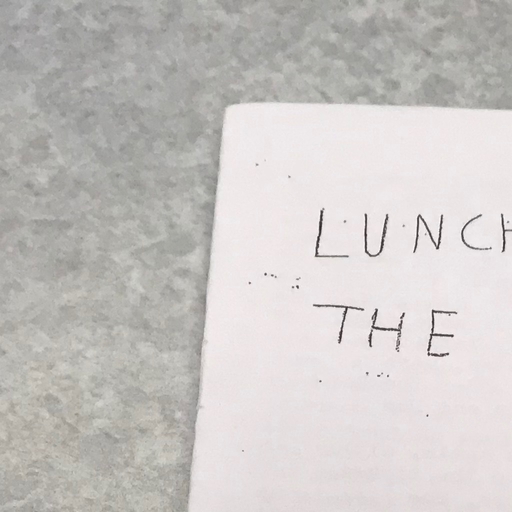 LUNCH
THE